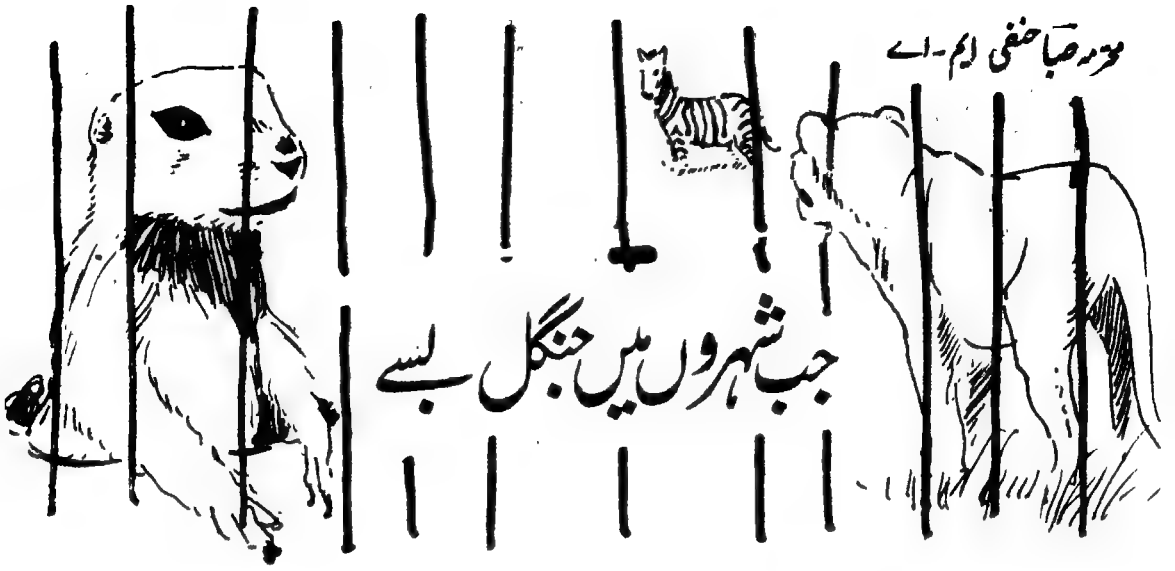 محترمہ صبا حنفی ایم-اے
جب شہروں میں جنگل بسے